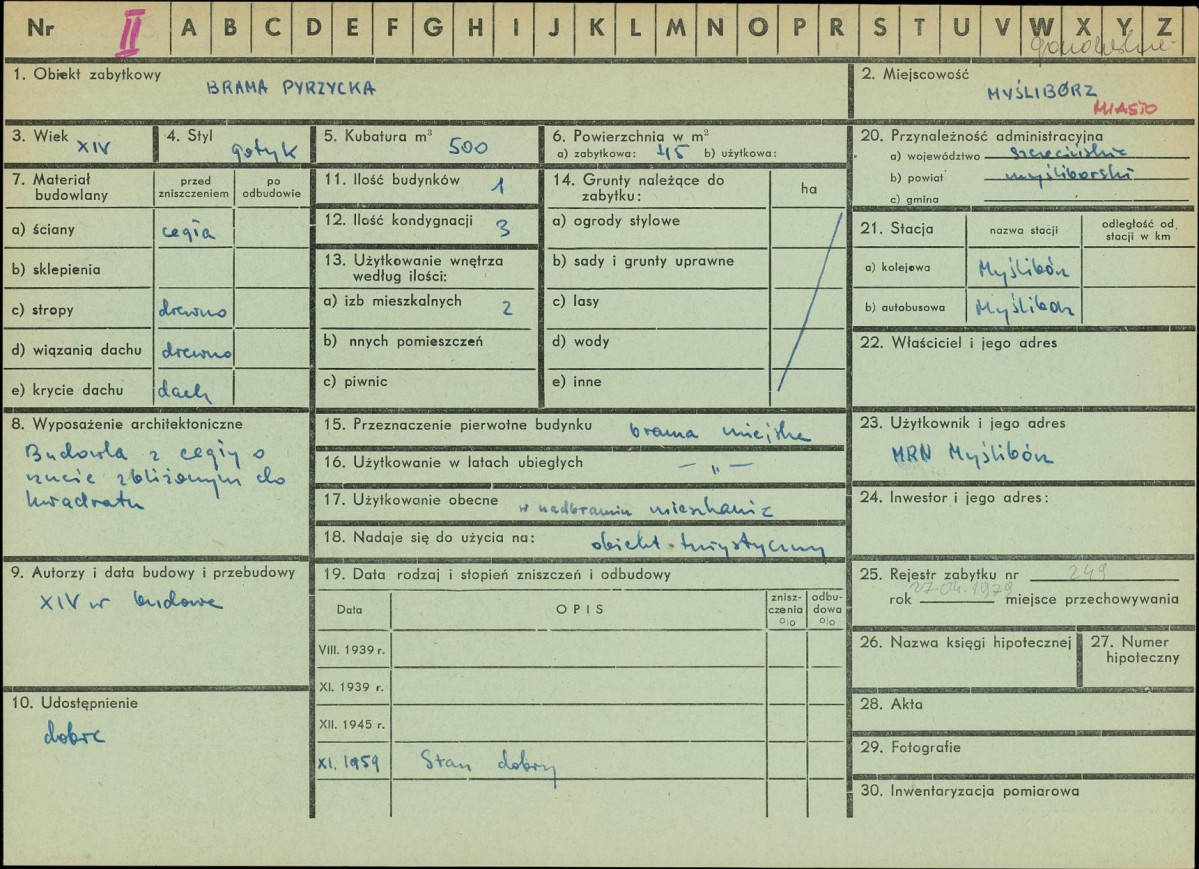 Nr II A B C D E F G H I J K L M N O P R S T U V W X Y Z
1. Obiekt zabytkowy
BRAMA PYRZYCKA
2. Miejscowość
MYŚLIBÓRZ
MIASTO
3. Wiek XIV
4. Styl gotyk
5. Kubatura m³ 500
6. Powierzchnia w m²
a) zabytkowa: 45 b) użytkowa:
20. Przynależność administracyjna
a) województwo szczecińskie
b) powiat myśliborski
c) gmina
7. Materiał budowlany
przed zniszczeniem
po odbudowie
a) ściany cegła
b) sklepienia
c) stropy drewno
d) wiązania dachu drewno
e) krycie dachu dach
11. Ilość budynków 1
12. Ilość kondygnacji 3
13. Użytkowanie wnętrza
według ilości:
a) izb mieszkalnych 2
b) nnych pomieszczeń
c) piwnic
14. Grunty należące do
zabytku:
ha
a) ogrody stylowe
b) sady i grunty uprawne
c) lasy
d) wody
e) inne
21. Stacja
nazwa stacji
odległość od
stacji w km
a) kolejowa Myślibórz
b) autobusowa Myślibórz
22. Właściciel i jego adres
8. Wyposażenie architektoniczne
Budowla z cegły o
rzucie zbliżonym do
kwadratu
15. Przeznaczenie pierwotne budynku brama miejska
16. Użytkowanie w latach ubiegłych — " —
17. Użytkowanie obecne w nadbramiu mieszkanie
18. Nadaje się do użycia na: obiekt turystyczny
23. Użytkownik i jego adres
MRN Myślibórz
24. Inwestor i jego adres:
9. Autorzy i data budowy i przebudowy
XIV w budowa
19. Data rodzaj i stopień zniszczeń i odbudowy
Data
OPIS
znisz-
czenia
o/o
odbu-
dowa
o/o
VIII. 1939 r.
XI. 1939 r.
XII. 1945 r.
XI. 1959 Stan dobry
25. Rejestr zabytku nr 249
rok 27.04.1979 miejsce przechowywania
26. Nazwa księgi hipotecznej
27. Numer
hipoteczny
10. Udostępnienie
dobre
28. Akta
29. Fotografie
30. Inwentaryzacja pomiarowa